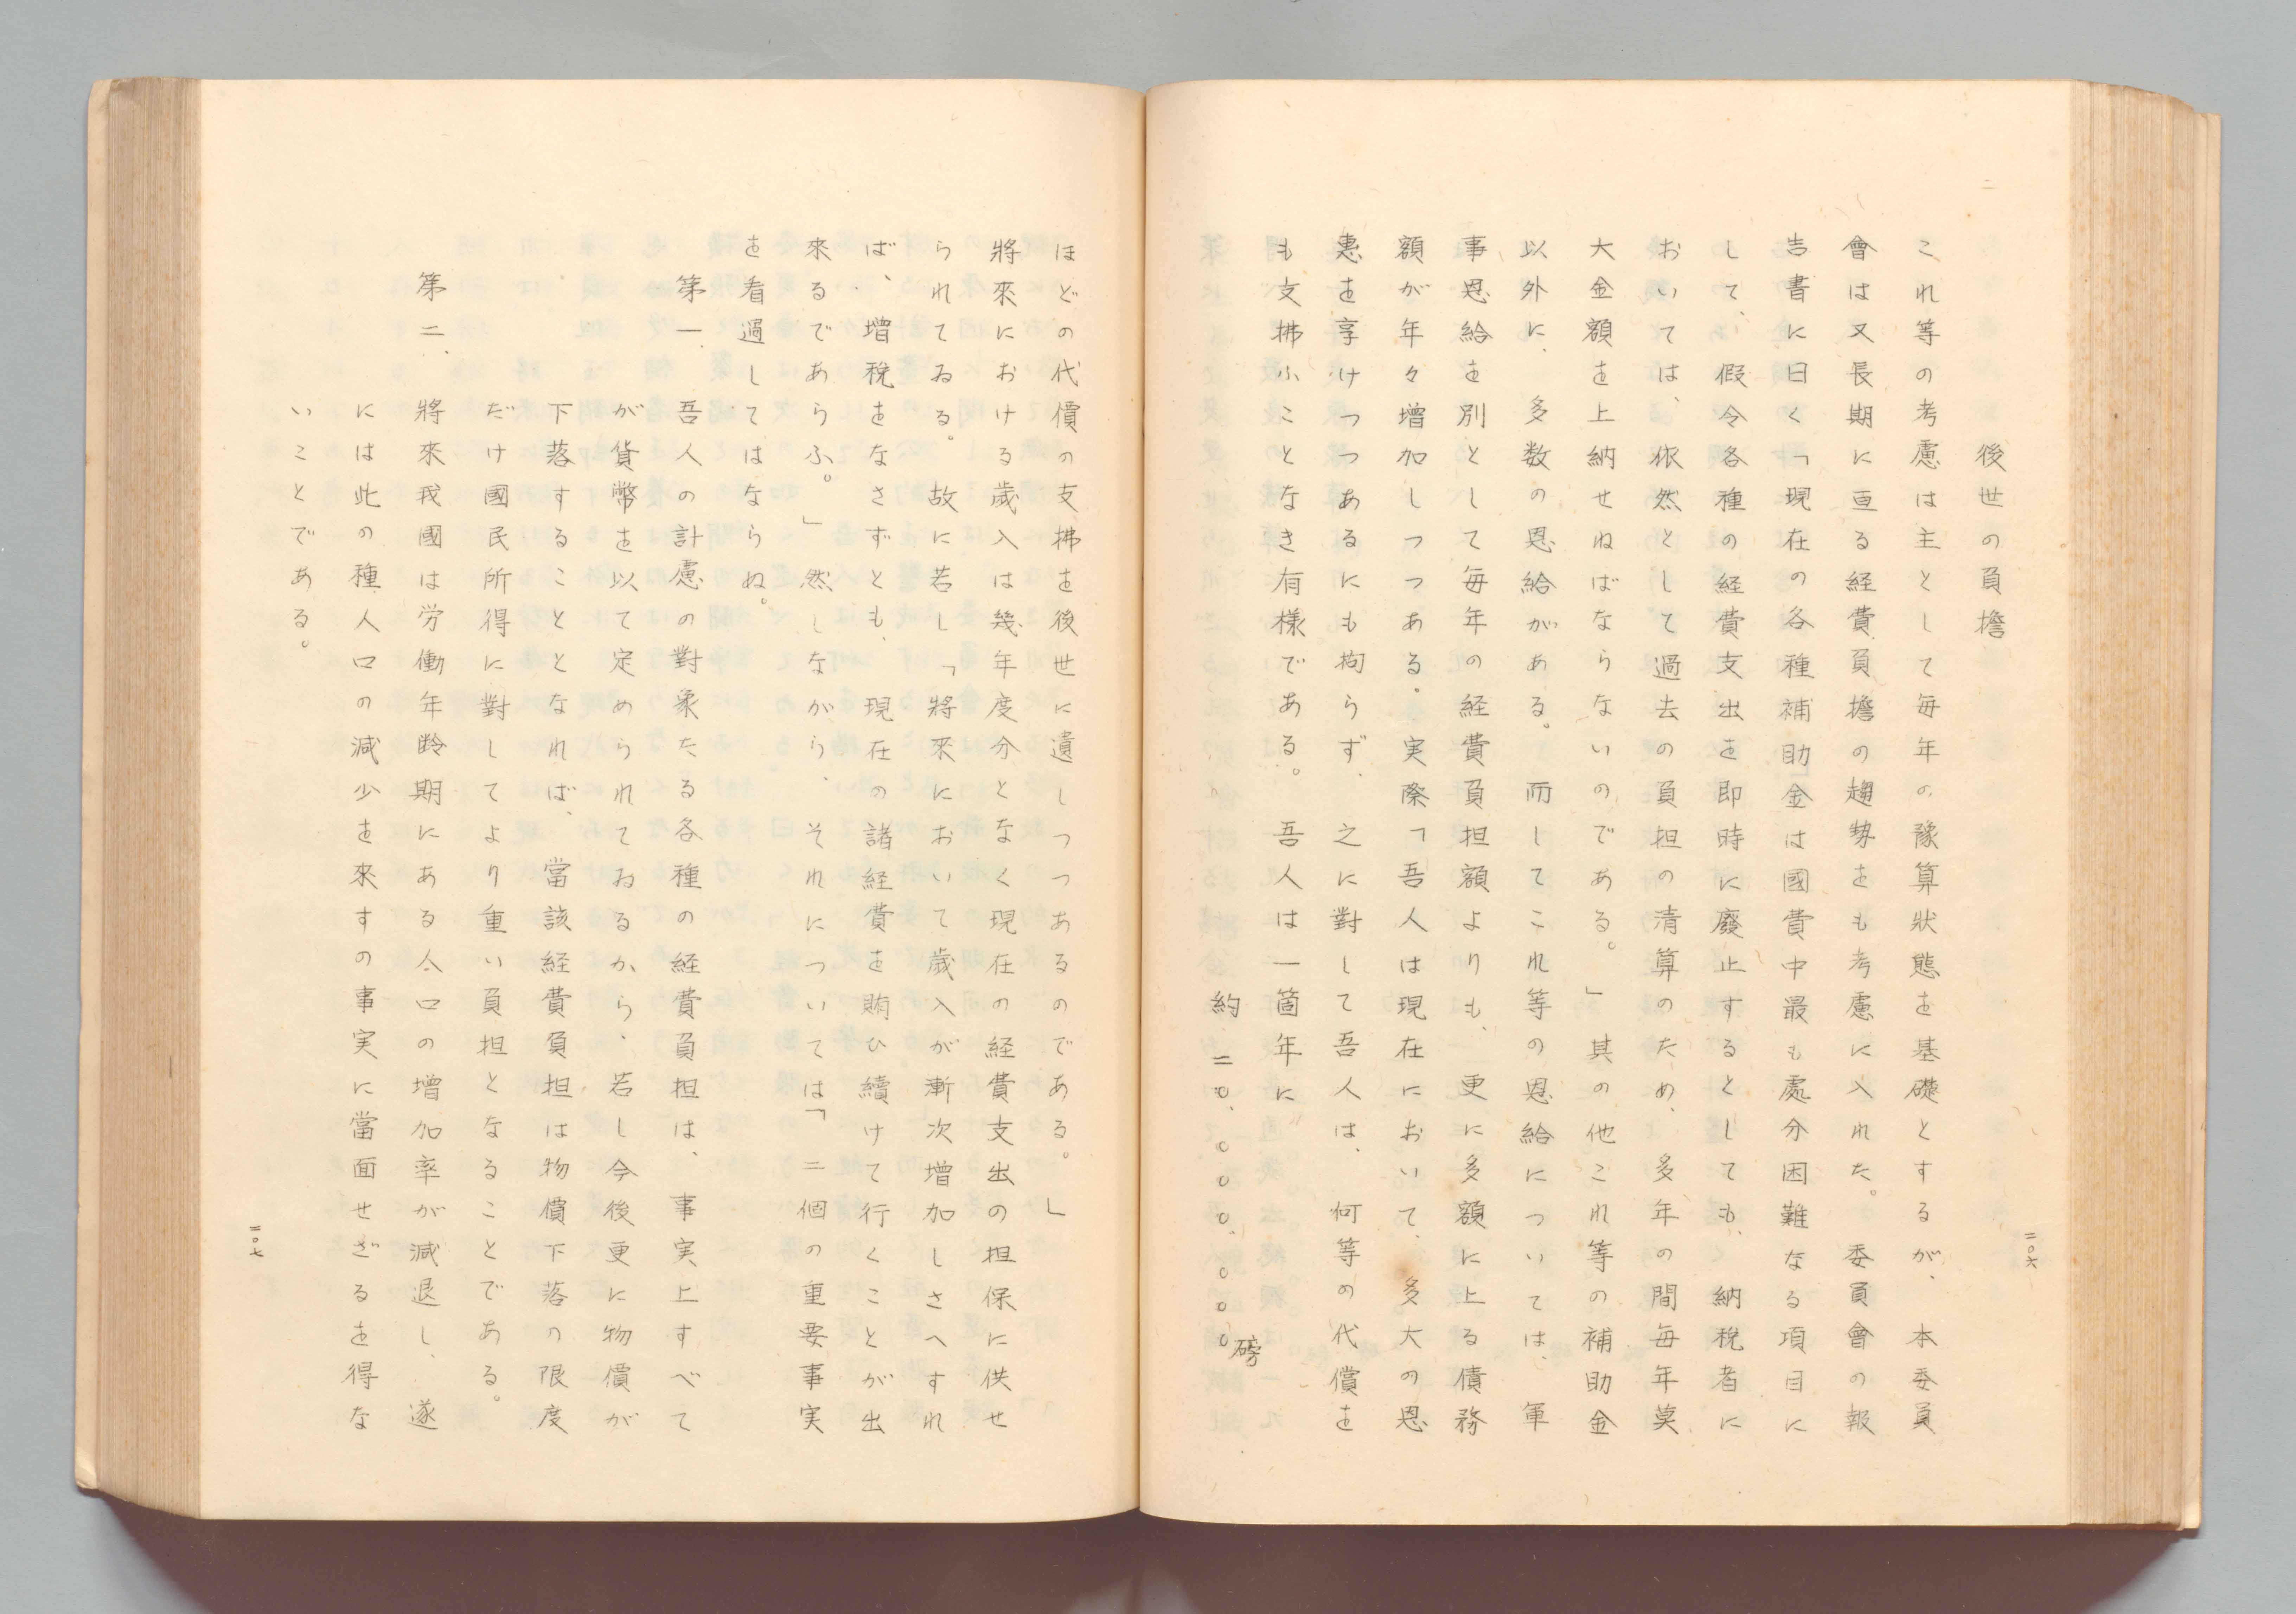 後世の負擔
これ等の考慮は主として毎年の豫算狀態を基礎とするが、本委員
會は又長期に亘る経費負擔の趨勢をも考慮に入れた。委員會の報
告書に曰く「現在の各種補助金は國費中最も處分困難なる項目に
して、假令各種の経費支出を即時に廢止するとしても、納稅者に
おいては、依然として過去の負担の清算のため、多年の間毎年莫
大金額を上納せねばならないのである。」其の他これ等の補助金
以外に、多数の恩給がある。而してこれ等の恩給については、軍
事恩給を別として毎年の経費負担額よりも、更に多額に上る債務
額が年々增加しつつある。実際「吾人は現在において、多大の恩
惠を享けつつあるにも拘らず、之に對して吾人は、何等の代償を
も支拂ふことなき有樣である。吾人は一箇年に
約二〇、〇〇〇、〇〇〇磅
二〇六
ほどの代價の支拂を後世に遺しつつあるのである。」
將來における歲入は幾年度分となく現在の経費支出の担保に供せ
られてゐる。故に若し「將來において歲入が漸次增加しさへすれ
ば、增稅をなさずとも、現在の諸経費を賄ひ續けて行くことが出
來るであらふ。」然しながら、それについては「二個の重要事実
を看過してはならぬ。
第一、吾人の計慮の對象たる各種の経費負担は、事実上すべて
が貨幣を以て定められてゐるから、若し今後更に物價が
下落することとなれば、當該経費負担は物價下落の限度
だけ國民所得に對してより重い負担となることである。
第二、將來我國は労働年齡期にある人口の增加率が減退し、遂
には此の種人口の減少を來すの事実に當面せざるを得な
いことである。
二〇七